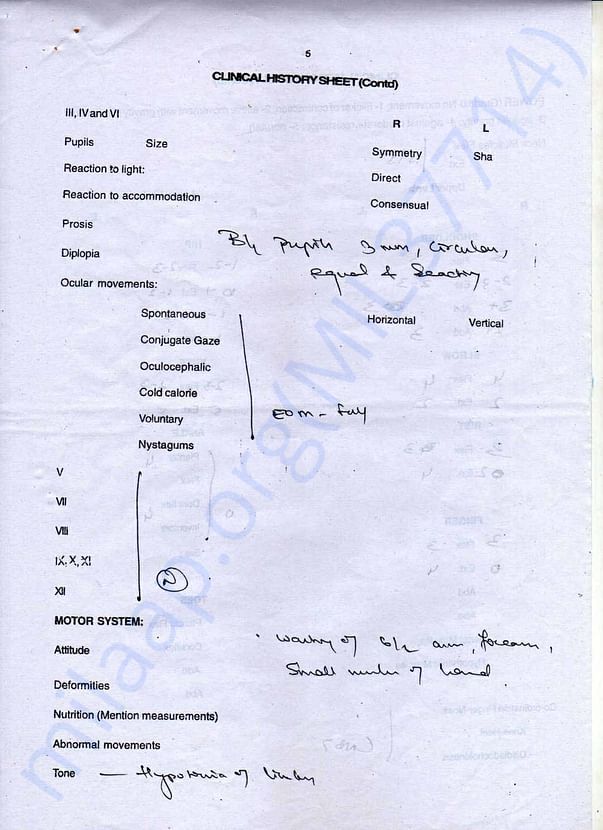 5
CLINICAL HISTORY SHEET (Contd)
III, IV and VI
R L
Pupils Size Symmetry Sha
Reaction to light: Direct
Reaction to accommodation Consensual
Prosis
B/L pupils 3 mm, circular,
Diplopia
equal & reacting
Ocular movements:
Spontaneous Horizontal Vertical
Conjugate Gaze
Oculocephalic
Cold calorie
Voluntary EOM - full
Nystagums
V
VII
VIII
IX, X, XI
XII N
MOTOR SYSTEM:
Attitude
wasting of B/L arm, forearm,
small muscles of hand
Deformities
Nutrition (Mention measurements)
Abnormal movements
Tone — Hypotonia of limbs
milaap.org(MIL37714)